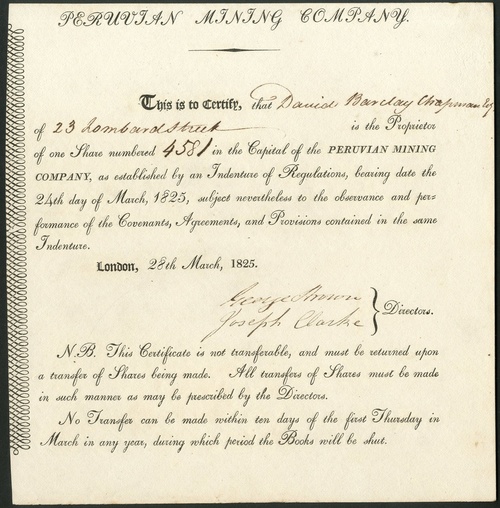 PERUVIAN MINING COMPANY.
This is to Certify, that David Barclay Chapman Esq
of 23 Lombard Street is the Proprietor
of one Share numbered 4581 in the Capital of the PERUVIAN MINING
COMPANY, as established by an Indenture of Regulations, bearing date the
24th day of March, 1825, subject nevertheless to the observance and per-
formance of the Covenants, Agreements, and Provisions contained in the same
Indenture.
London, 28th March, 1825.
George Brown
Joseph Clarke } Directors.
N.B. This Certificate is not transferable, and must be returned upon
a transfer of Shares being made. All transfers of Shares must be made
in such manner as may be prescribed by the Directors.
No Transfer can be made within ten days of the first Thursday in
March in any year, during which period the Books will be shut.